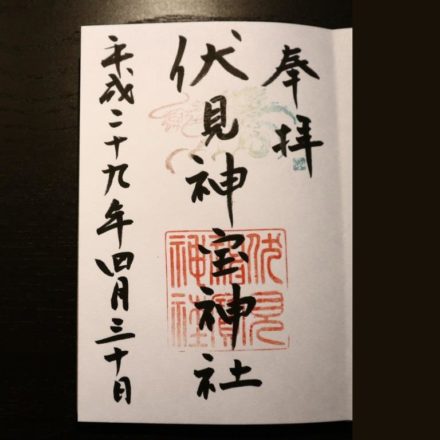 奉拝
伏見神宝神社
平成二十九年四月三十日
伏見神寳神社